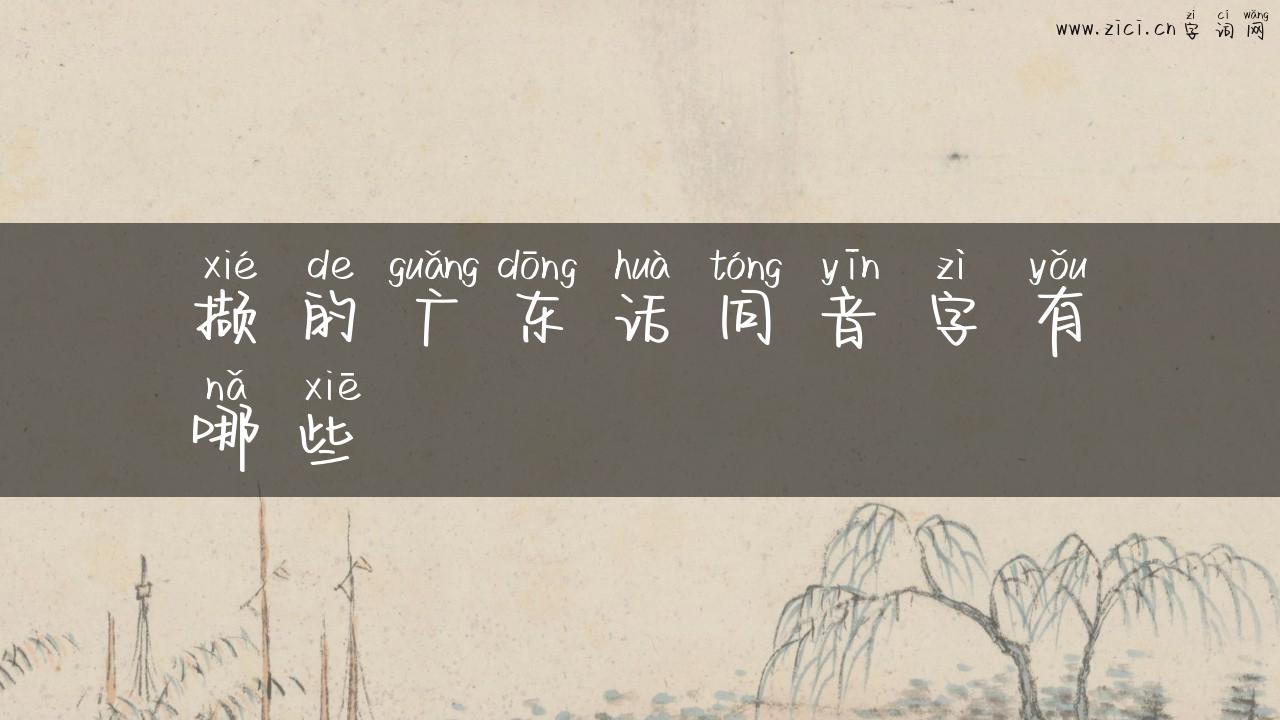 zì cí wǎng
www.zici.cn 字词网
xié de guǎng dōng huà tóng yīn zì yǒu
撷的广东话同音字有
nǎ xiē
哪些